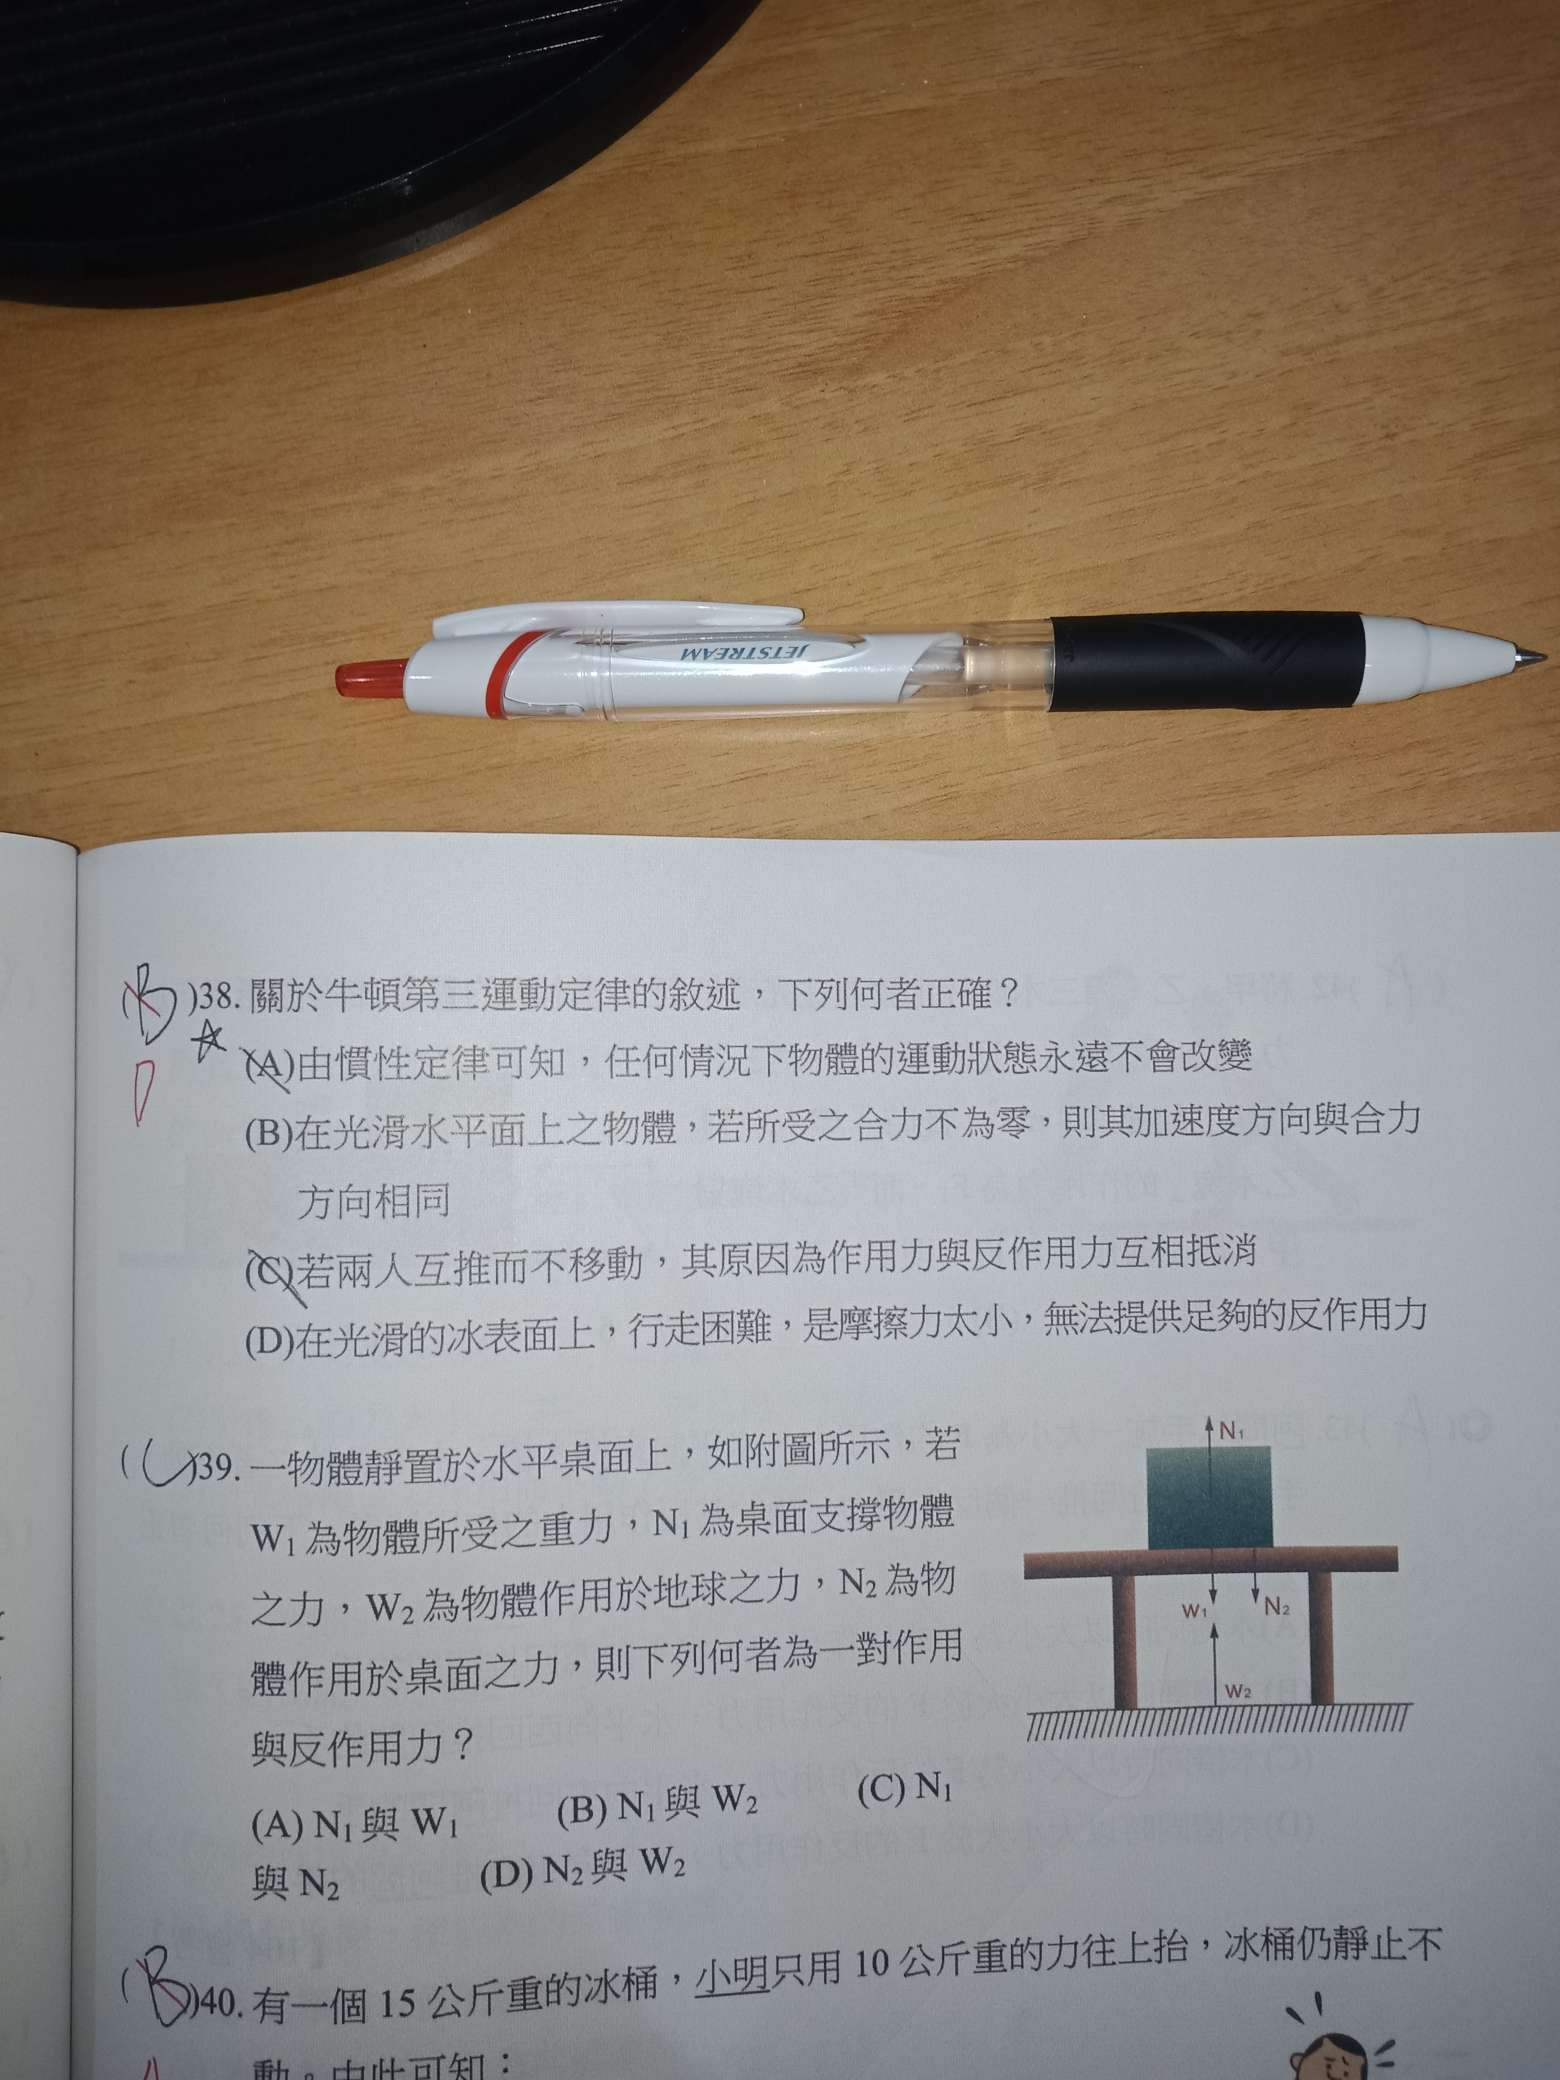 JETSTREAM
(B)38. 關於牛頓第三運動定律的敘述，下列何者正確？
D
(A)由慣性定律可知，任何情況下物體的運動狀態永遠不會改變
(B)在光滑水平面上之物體，若所受之合力不為零，則其加速度方向與合力
方向相同
(C)若兩人互推而不移動，其原因為作用力與反作用力互相抵消
(D)在光滑的冰表面上，行走困難，是摩擦力太小，無法提供足夠的反作用力
(C)39. 一物體靜置於水平桌面上，如附圖所示，若
W1 為物體所受之重力，N1 為桌面支撐物體
之力，W2 為物體作用於地球之力，N2 為物
體作用於桌面之力，則下列何者為一對作用
與反作用力？
(A) N1 與 W1 (B) N1 與 W2 (C) N1
與 N2 (D) N2 與 W2
N1
W1 N2
W2
(B)40. 有一個 15 公斤重的冰桶，小明只用 10 公斤重的力往上抬，冰桶仍靜止不
動。由此可知：